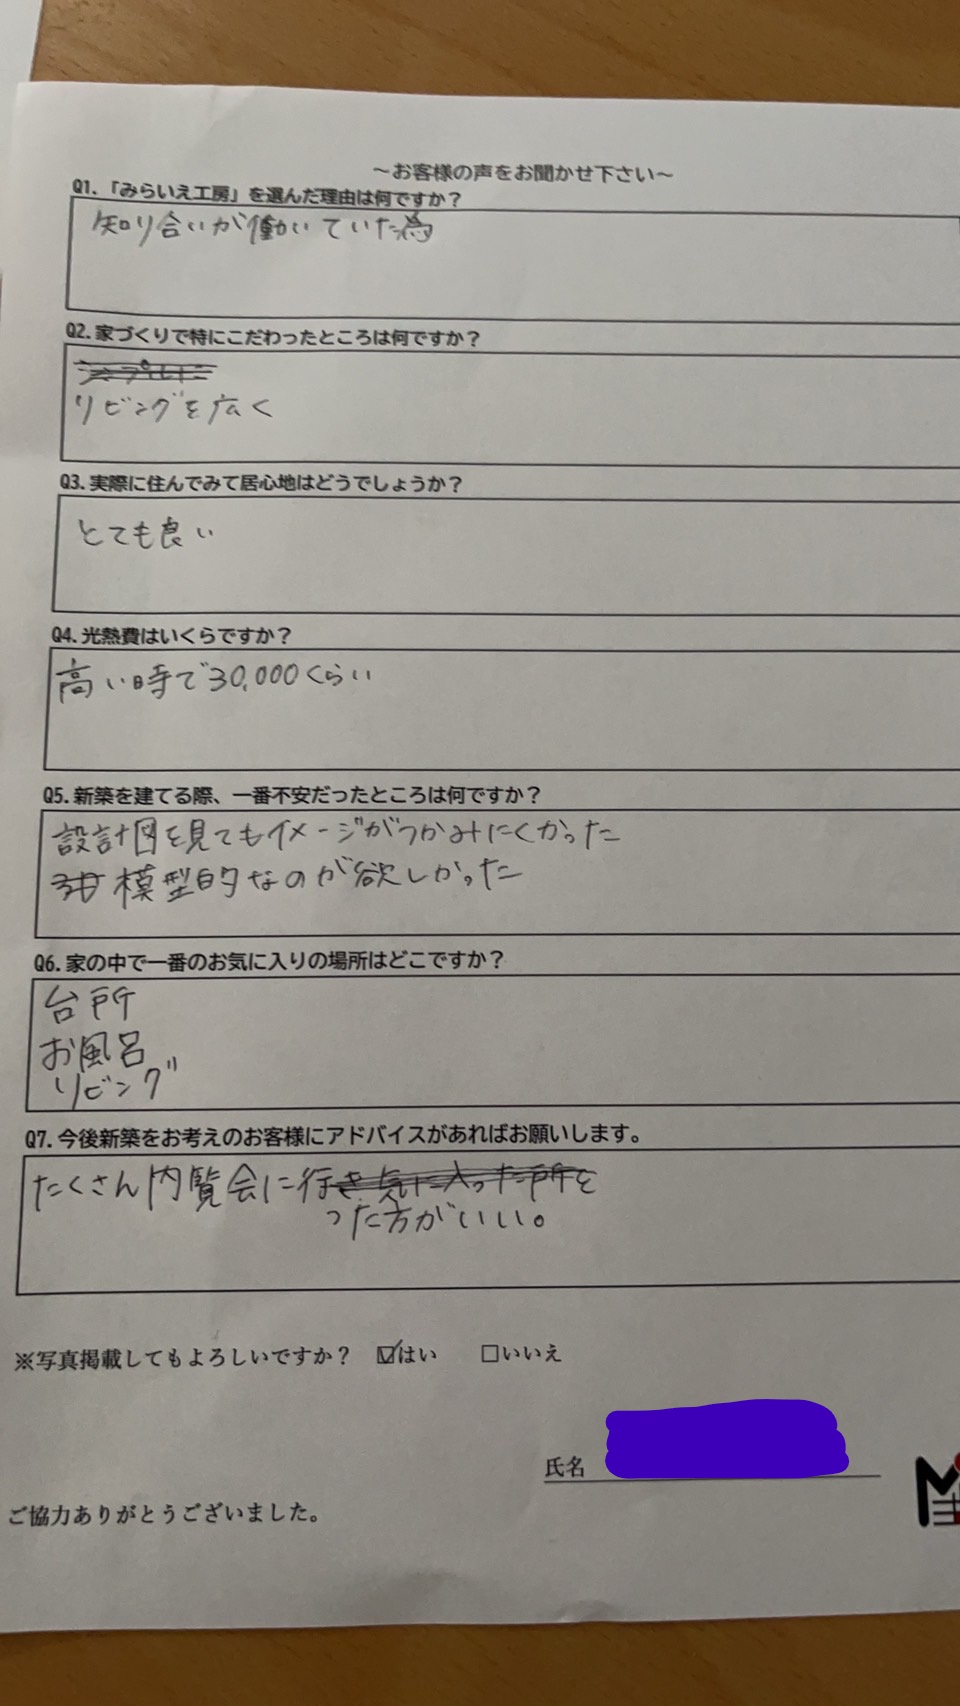 ～お客様の声をお聞かせ下さい～
Q1.「みらいえ工房」を選んだ理由は何ですか？
知り合いが働いていた為
Q2.家づくりで特にこだわったところは何ですか？
リビングを広く
Q3.実際に住んでみて居心地はどうでしょうか？
とても良い
Q4.光熱費はいくらですか？
高い時で30,000くらい
Q5.新築を建てる際、一番不安だったところは何ですか？
設計図を見てもイメージがつかみにくかった
模型的なのが欲しかった
Q6.家の中で一番のお気に入りの場所はどこですか？
台所
お風呂
リビング
Q7.今後新築をお考えのお客様にアドバイスがあればお願いします。
たくさん内覧会に行き気に入った所を
った方がいい。
※写真掲載してもよろしいですか？ ☑はい □いいえ
氏名
ご協力ありがとうございました。